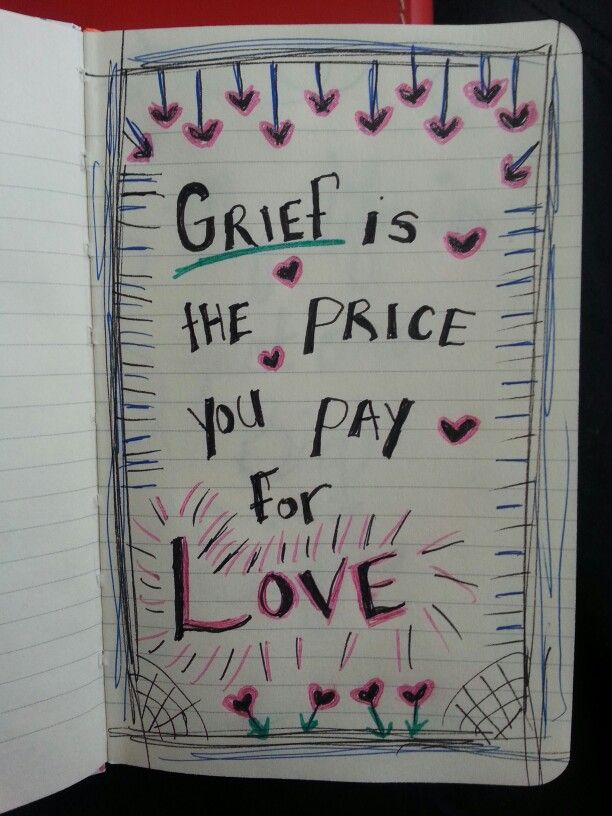 GRIEF is
tHE PRICE
you PAY
For
LOVE